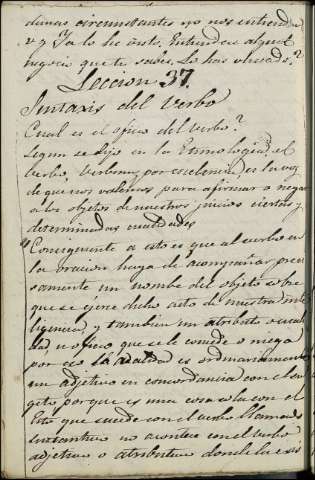 circunstantes no nos entienden
y Ya lo he visto. Entendia algun
negocio que te sabes. Lo has olvidado?
Leccion 37.
Sintaxis del Verbo
Cual es el oficio del verbo?
Segun se dijo en la Etimologia el
verbo, Verbum, por escelencia es la voz
de que nos valemos para afirmar o negar
a los objetos de nuestros juicios ciertas y
determinadas cualidades
Consiguiente a esto es que al verbo en
la oracion haya de acompañar preci
samente un nombre del objeto sobre
que se ejerce dicho acto de nuestra inte
ligencia, y tambien un atributo o cuali
dad, u oficio que se le concede o niega
por eso la cualidad es ordinariamente
un adjetivo en concordancia con el su
geto porque es una cosa sola con el
Esto que sucede con el verbo llamado
sustantivo no acontece con el verbo
adjetivo o atributivo donde la